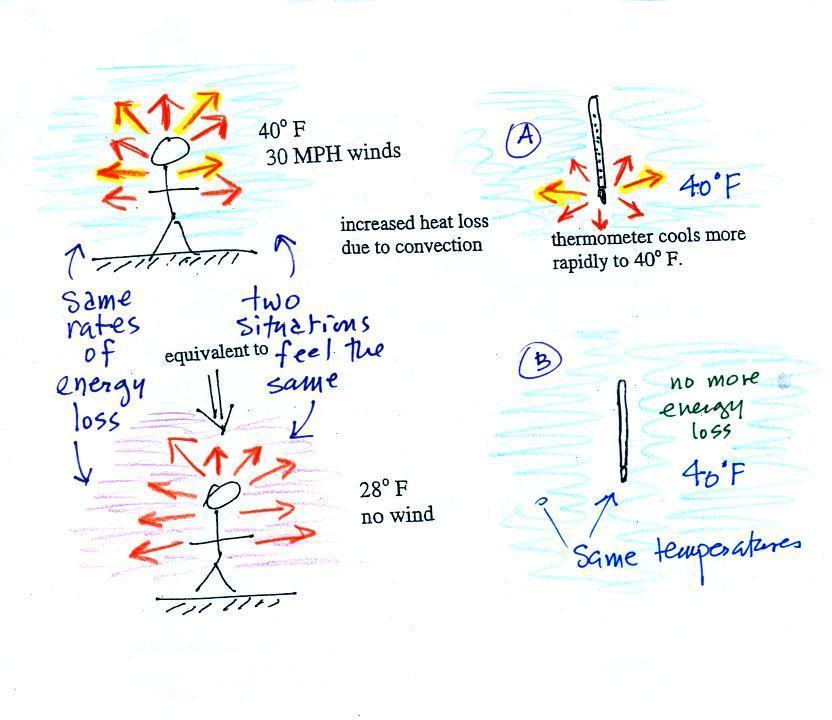 40° F
30 MPH winds
increased heat loss
due to convection
Same
rates
of
energy
loss
two
situations
feel the
same
equivalent to
28° F
no wind
A
40°F
thermometer cools more
rapidly to 40° F.
B
no more
energy
loss
40°F
Same temperatures